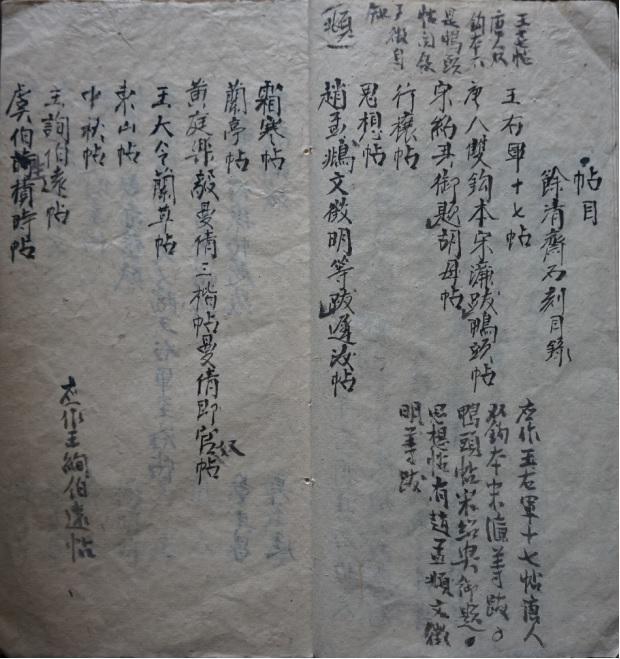 帖目
餘清齋石刻目錄
王右軍十七帖
唐人雙鉤本宋濂跋鴨頭帖
宋紹興御題胡母帖
行穰帖
思想帖
趙孟頫文徵明等跋遲汝帖
王十七帖
唐人雙
鉤本六
是鴨頭
應作王右軍十七帖唐人
双鈎本宋濂等跋。
鴨頭帖宋紹興御題。
思想帖有趙孟頫文徵
明等跋
霜寒帖
蘭亭帖
黃庭樂毅曼倩三楷帖曼倩即官奴帖
王大令蘭草帖
東山帖
中秋帖
王詢伯遠帖
虞伯施積時帖
應作王絢伯遠帖